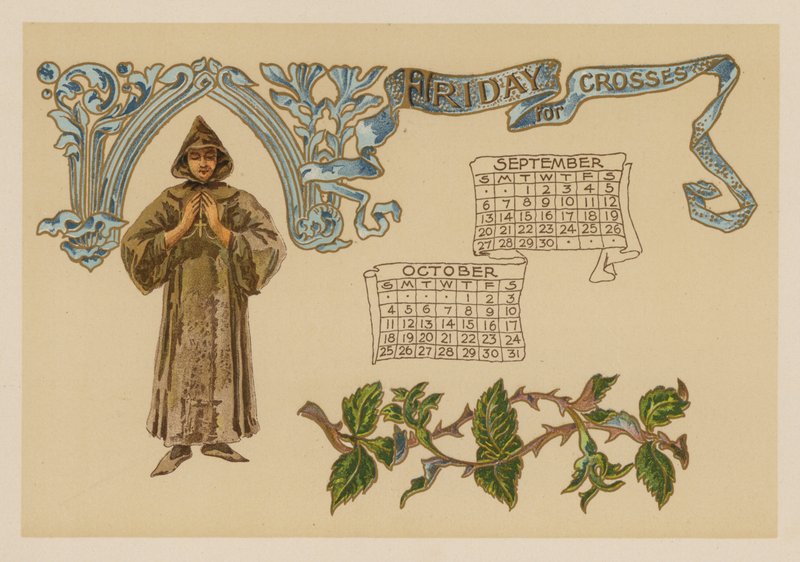 FRIDAY
for CROSSES
SEPTEMBER
S M T W T F S
· · 1 2 3 4 5
6 7 8 9 10 11 12
13 14 15 16 17 18 19
20 21 22 23 24 25 26
27 28 29 30 · · ·
OCTOBER
S M T W T F S
· · · · 1 2 3
4 5 6 7 8 9 10
11 12 13 14 15 16 17
18 19 20 21 22 23 24
25 26 27 28 29 30 31